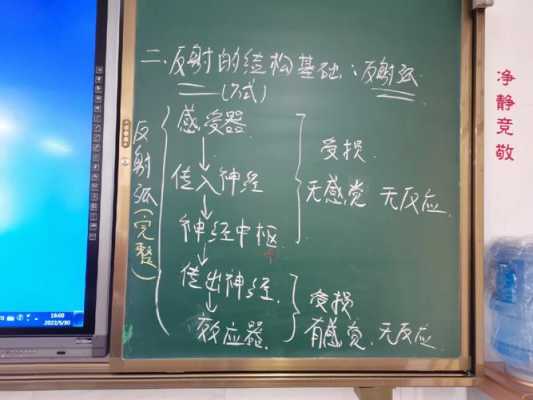 二.反射的结构基础:反射弧
(方式)
反射弧(完整)
感受器
↓
传入神经
↓
神经中枢
↓
传出神经.
↓
效应器.
受损.
无感觉 无反应.
受损
有感觉.无反应.
净静竞敬
19:00
2022/5/30